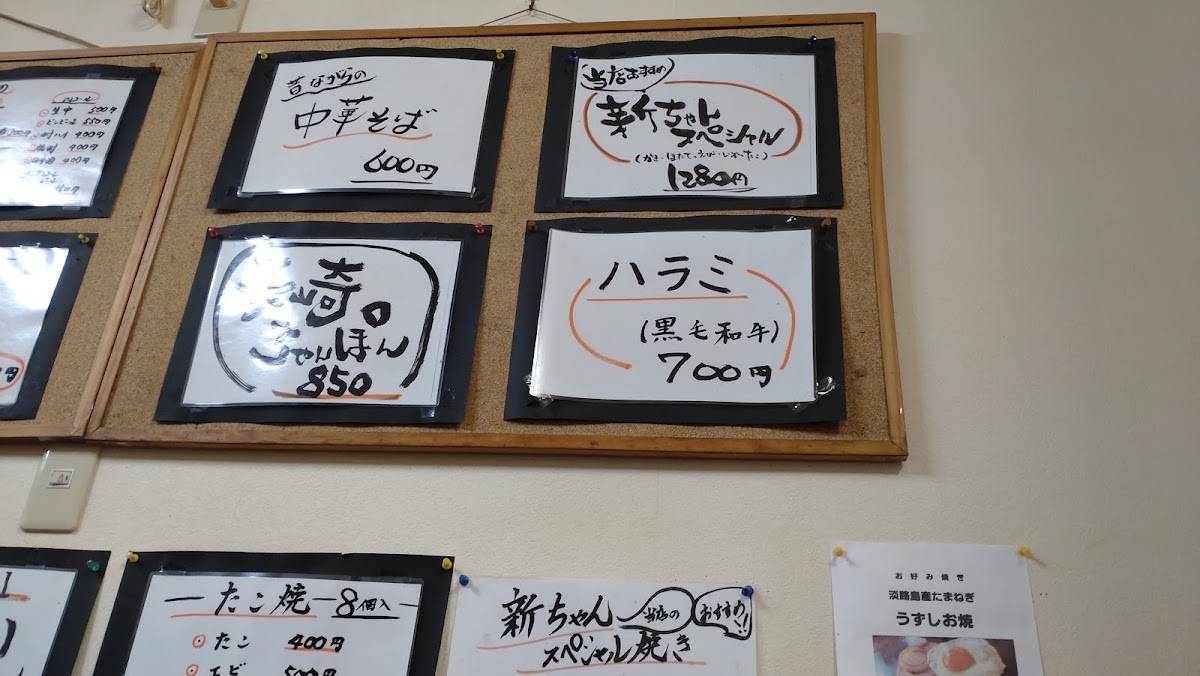 生中 500円
昔ながらの
中華そば
600円
当店おすすめ
新ちゃん
スペシャル
(かき・ほたて・えび・いか・たこ)
1280円
崎の
ちゃんぽん
850
ハラミ
(黒毛和牛)
700円
たこ焼 8個入
たこ 400円
エビ 500円
新ちゃん
当店の
おすすめ!!
スペシャル焼き
お好み焼き
淡路島産たまねぎ
うずしお焼